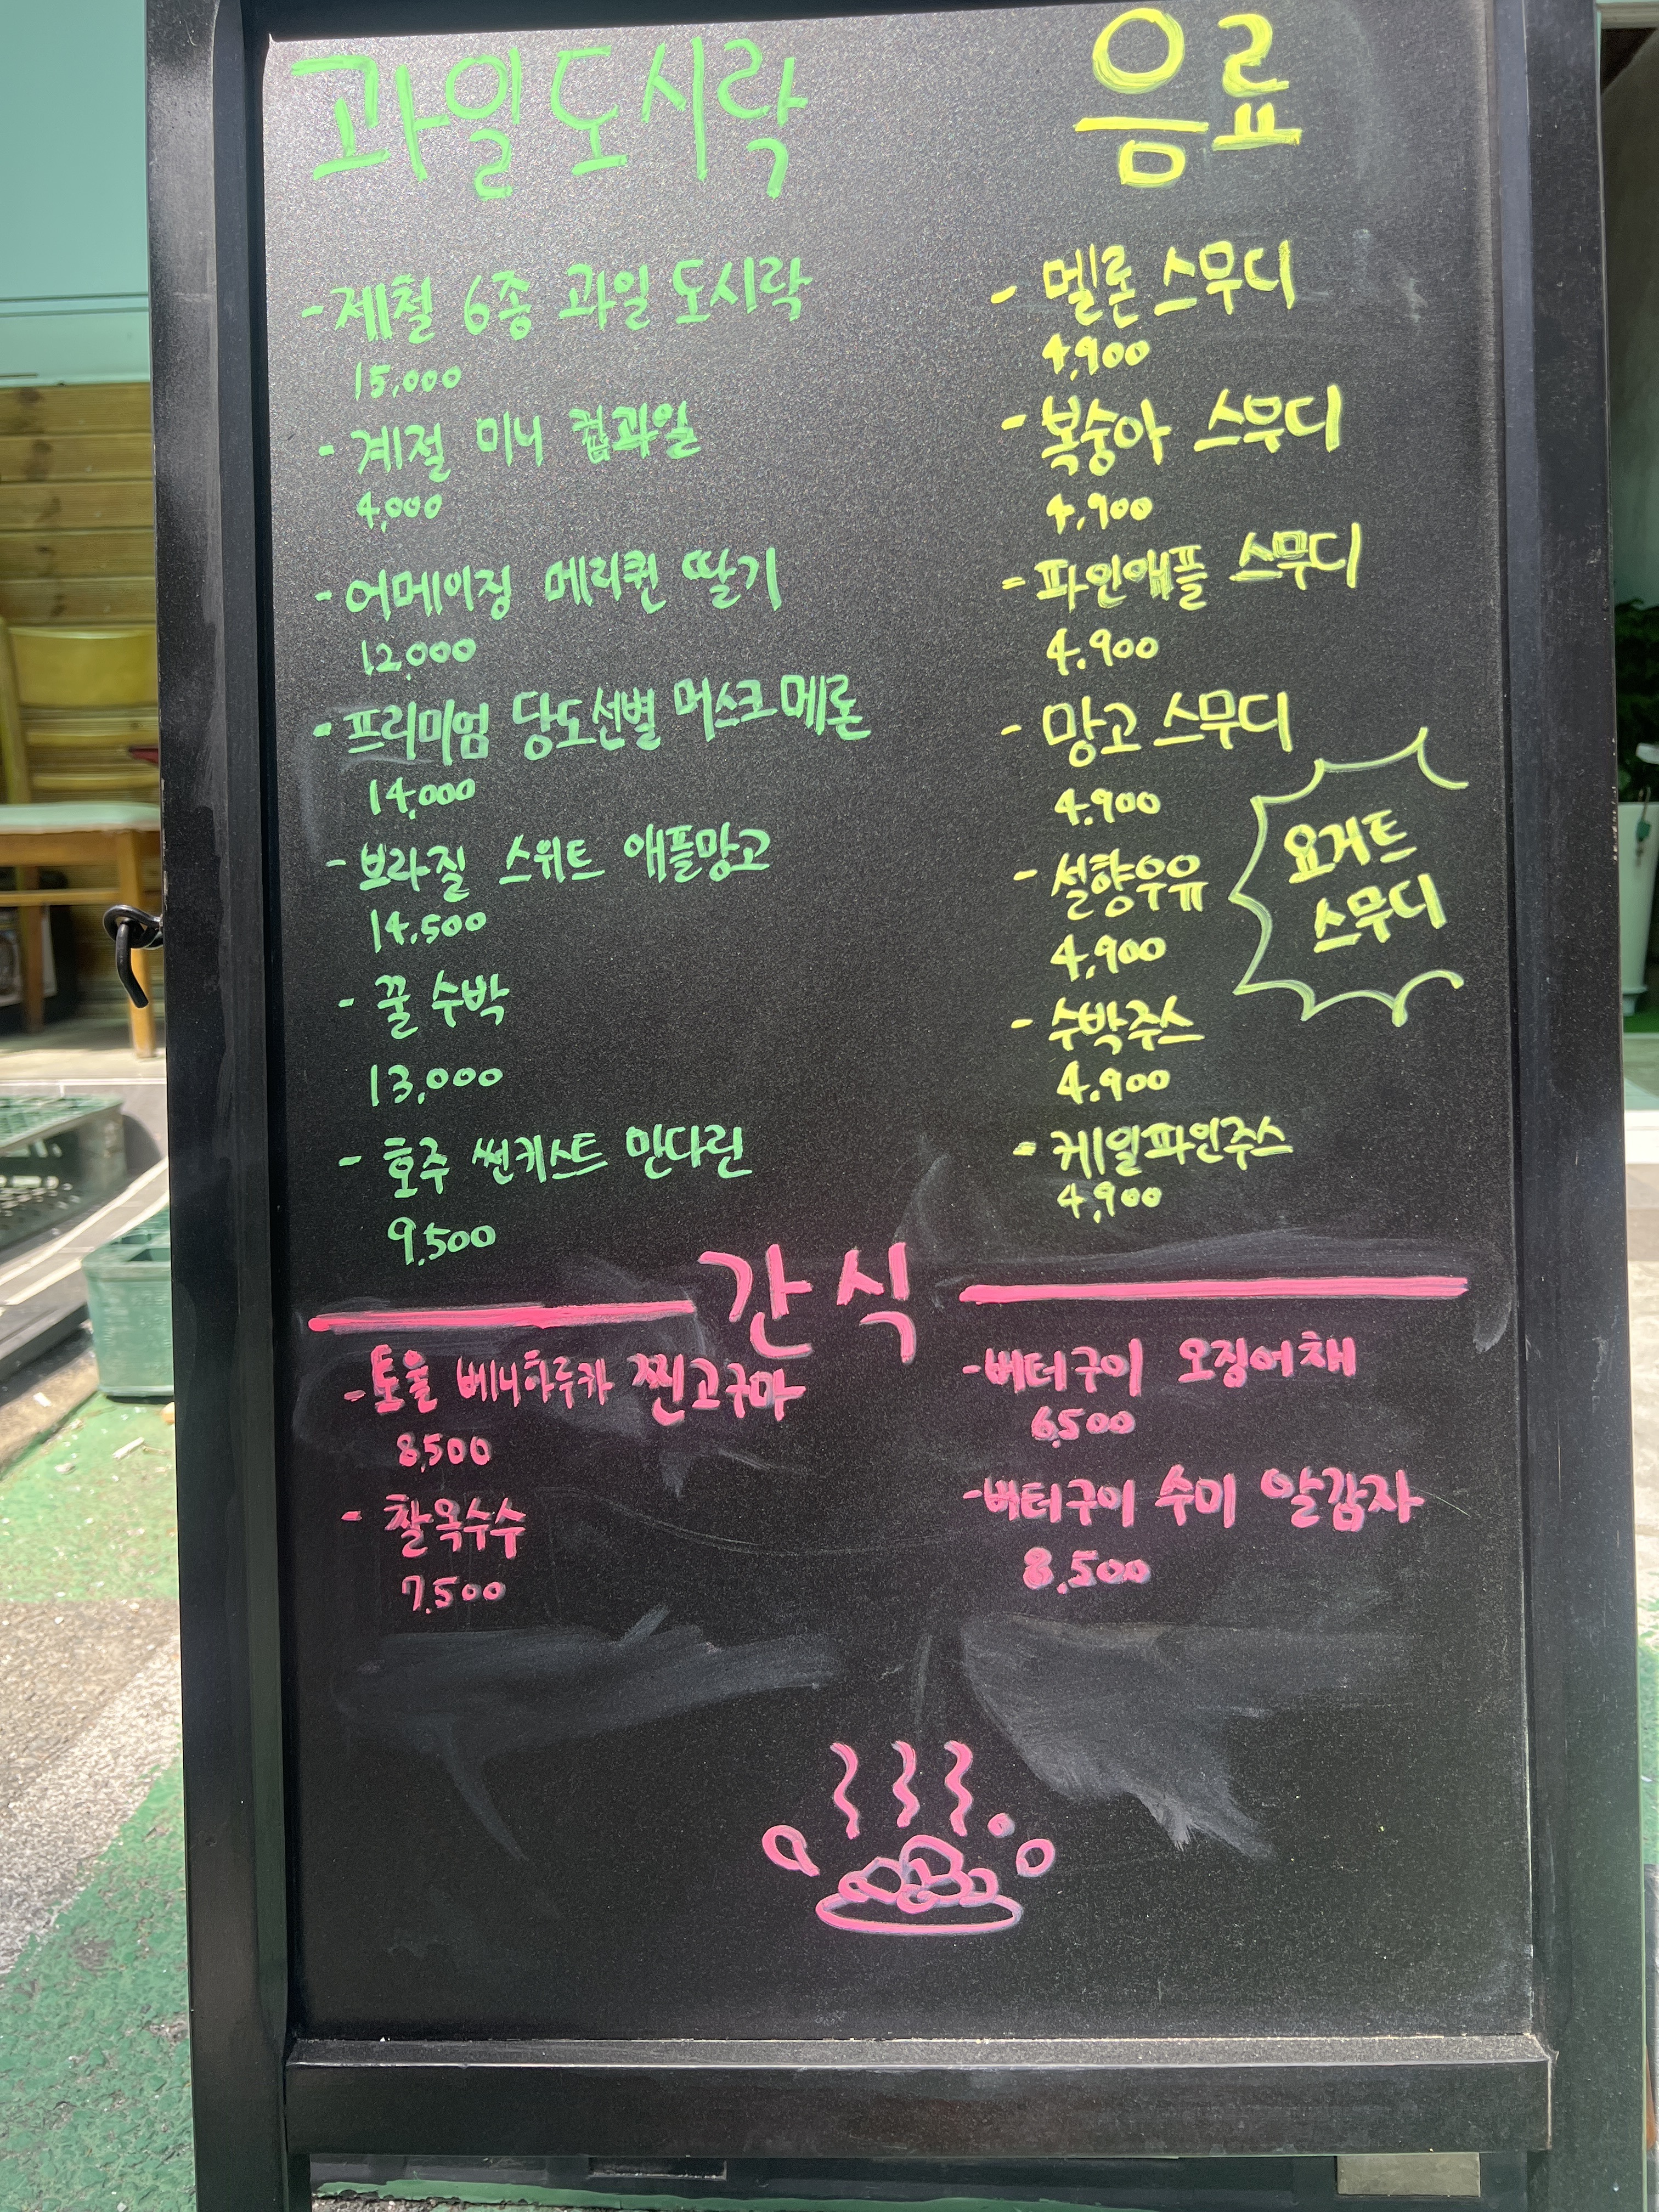 과일도시락
- 제철 6종 과일 도시락
15,000
- 계절 미니 컵과일
4,000
- 어메이징 메리퀸 딸기
12,000
- 프리미엄 당도선별 머스크메론
14,000
- 브라질 스위트 애플망고
14,500
- 꿀수박
13,000
- 호주 썬키스트 만다린
9,500
음료
- 멜론 스무디
4,900
- 복숭아 스무디
4,900
- 파인애플 스무디
4,900
- 망고 스무디
4,900
- 설향우유
4,900
- 수박주스
4,900
- 케일파인주스
4,900
요거트
스무디
간식
- 토율 베니하루카 찐고구마
8,500
- 찰옥수수
7,500
- 버터구이 오징어채
6,500
- 버터구이 수미 알감자
8,500